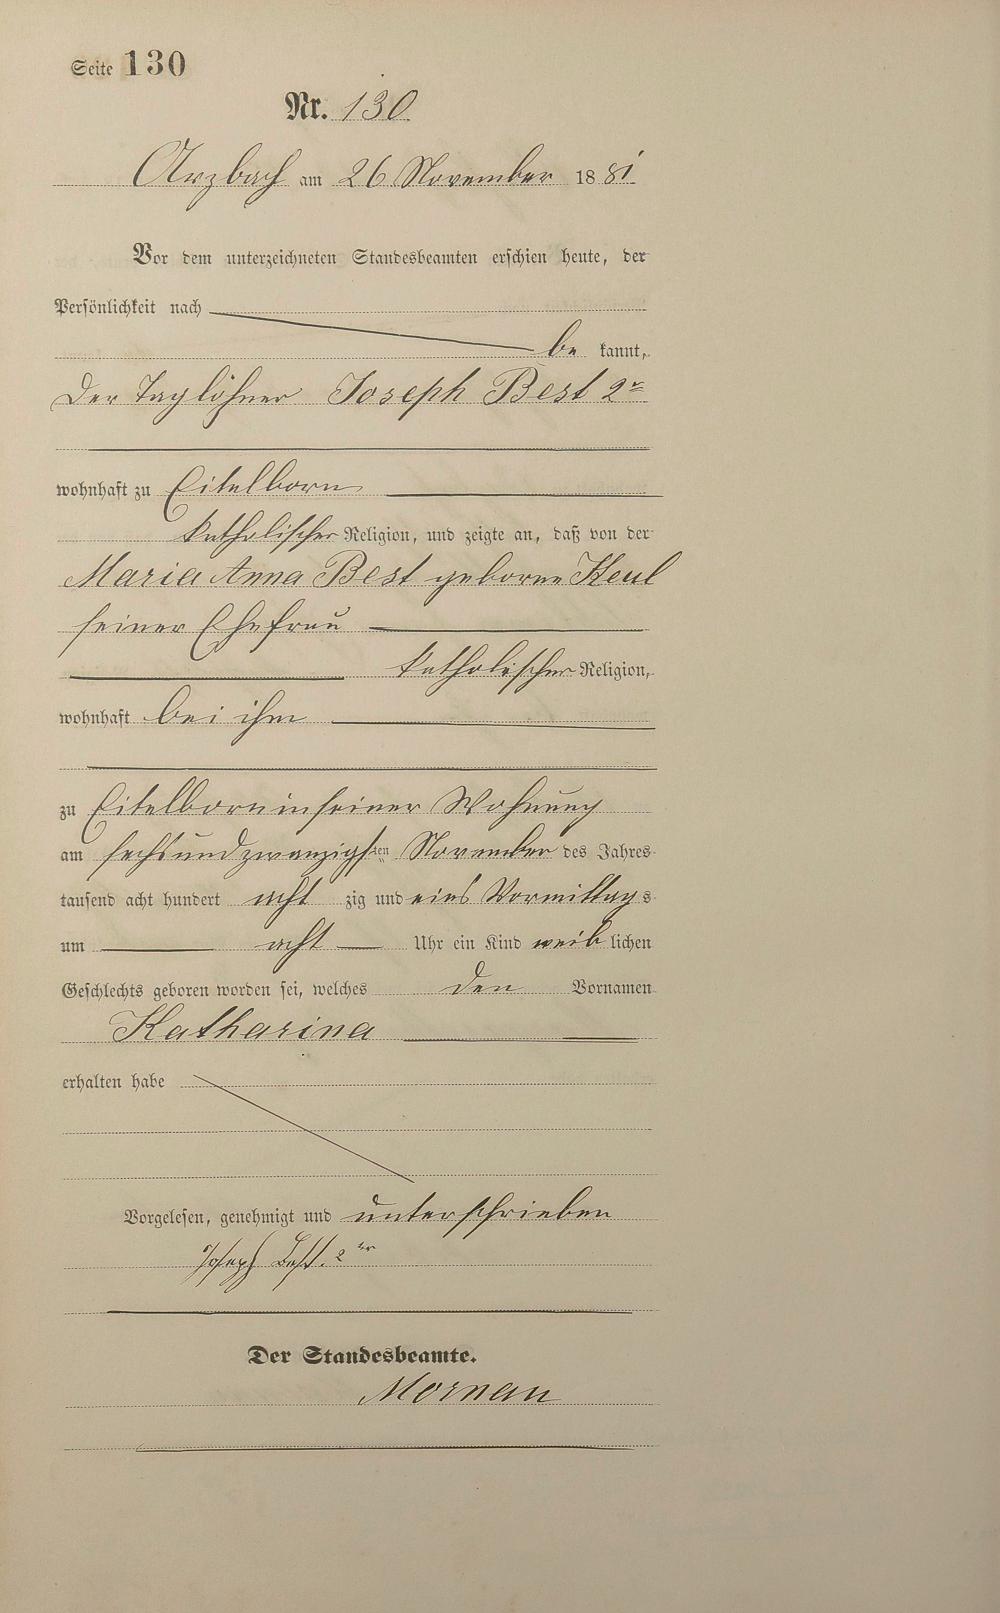 Seite 130
Nr. 130
Arzbach am 26 November 1881
Vor dem unterzeichneten Standesbeamten erschien heute, der
Persönlichkeit nach
be kannt,
Der Taglöhner Joseph Best 2r
wohnhaft zu Eitelborn
katholischer Religion, und zeigte an, daß von der
Maria Anna Best geborne Keul
seiner Ehefrau
katholischer Religion,
wohnhaft bei ihm
zu Eitelborn in seiner Wohnung
am sechsundzwanzigsten November des Jahres
tausend acht hundert acht zig und eins Vormittags
um acht Uhr ein Kind weiblichen
Geschlechts geboren worden sei, welches den Vornamen
Katharina
erhalten habe
Vorgelesen, genehmigt und unterschrieben
Joseph Best. 2ter
Der Standesbeamte.